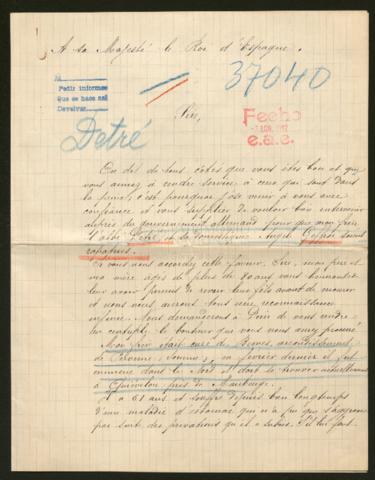 A sa Majesté le Roi d'Espagne.
37040
A
Pedir informes
Que se haga así
Devolver
Fecho
1917
e.a.e.
Detré
Sire,
On dit de tous côtés que vous êtes bon et que
vous aimez à rendre service à ceux qui sont dans
la peine, c'est pourquoi j'ose venir à vous avec
confiance et vous supplier de vouloir bon intervenir
auprès du gouvernement allemand pour que mon frère
l'abbé Detré et sa domestique Angèle soient
rapatriés.
Si vous nous accordez cette faveur, Sire, mon père et
ma mère âgés de plus de 80 ans vous
leur avoir permis de revoir leur fils avant de mourir
et nous vous aurons tous une reconnaissance
infinie. Nous demanderons à Dieu de vous rendre
au centuple le bonheur que vous nous aurez procuré.
Mon frère était curé de arrondissement
de Péronne (Somme), en février dernier il fut
emmené dans le Nord et doit se trouver actuellement
à près de Maubeuge.
Il a 51 ans et souffre depuis bon longtemps
d'une maladie d'estomac qui n'a pu que s'aggraver
par suite des privations qu'il a subies. S'il lui faut